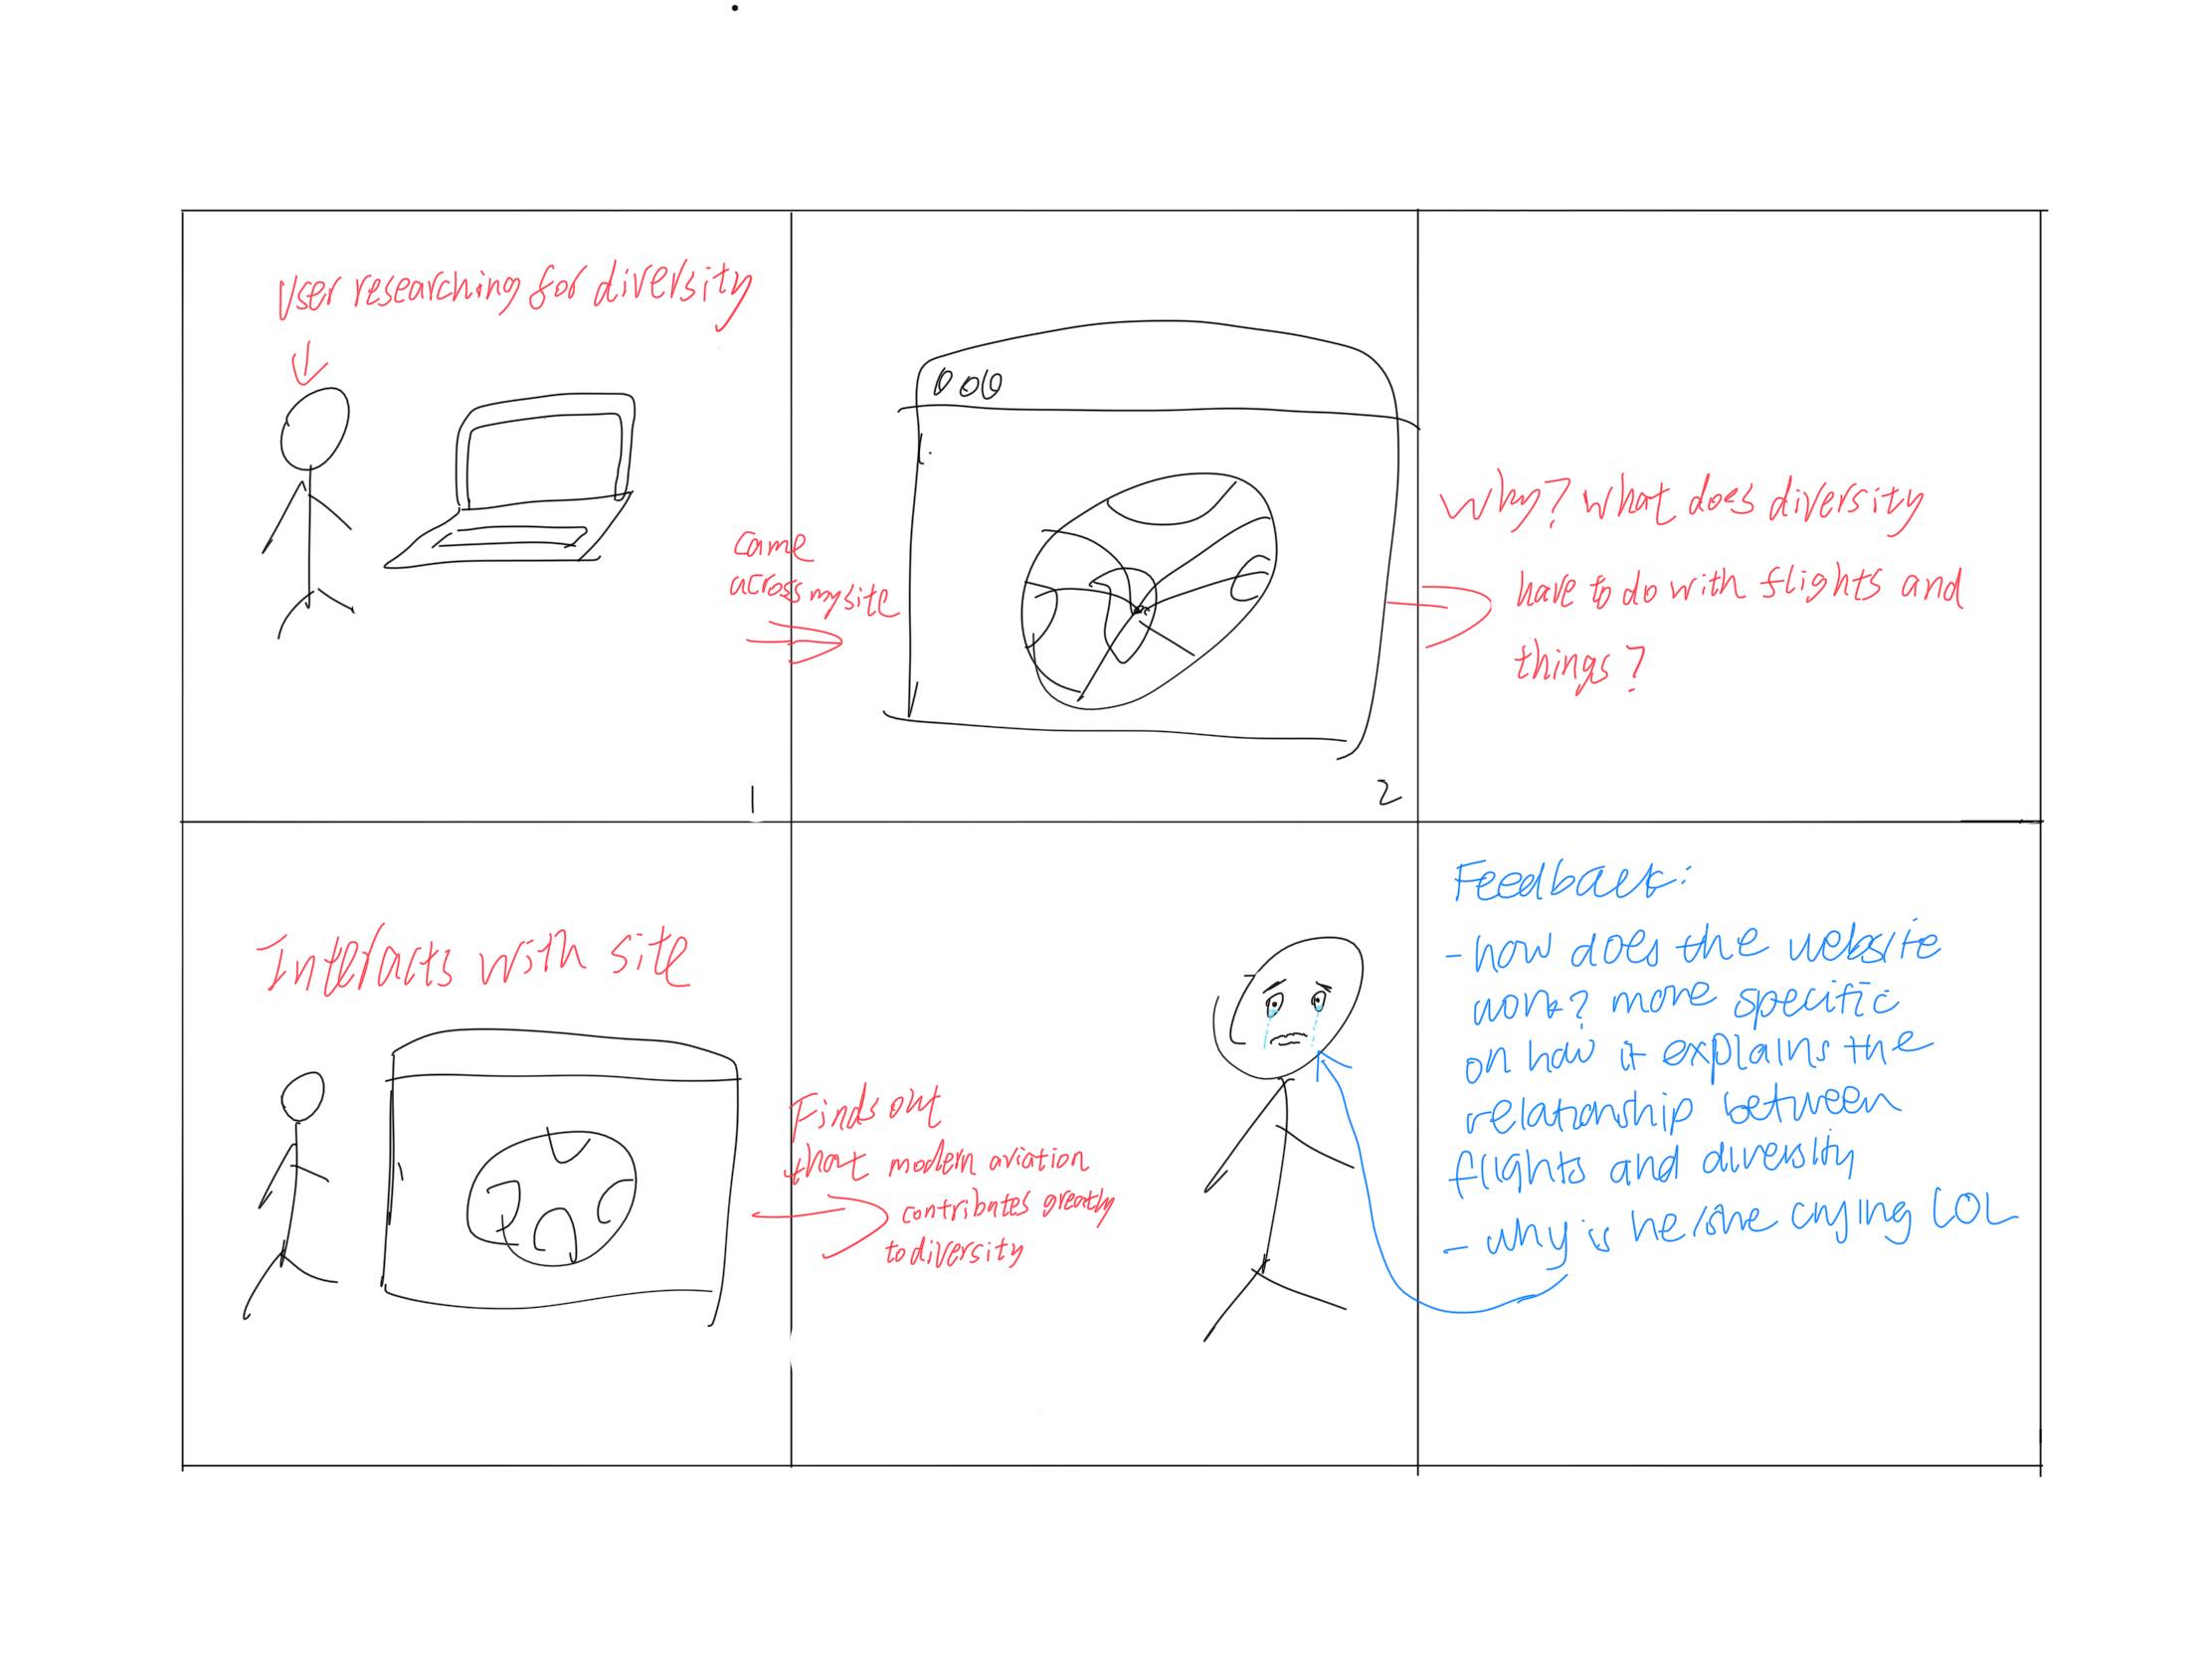 User researching for diversity
came
across my site
1
2
Why? What does diversity
have to do with flights and
things?
Interacts with site
Finds out
that modern aviation
contributes greatly
to diversity
Feedback:
- how does the website
work? more specific
on how it explains the
relationship between
flights and diversity
- why is he/she crying LOL